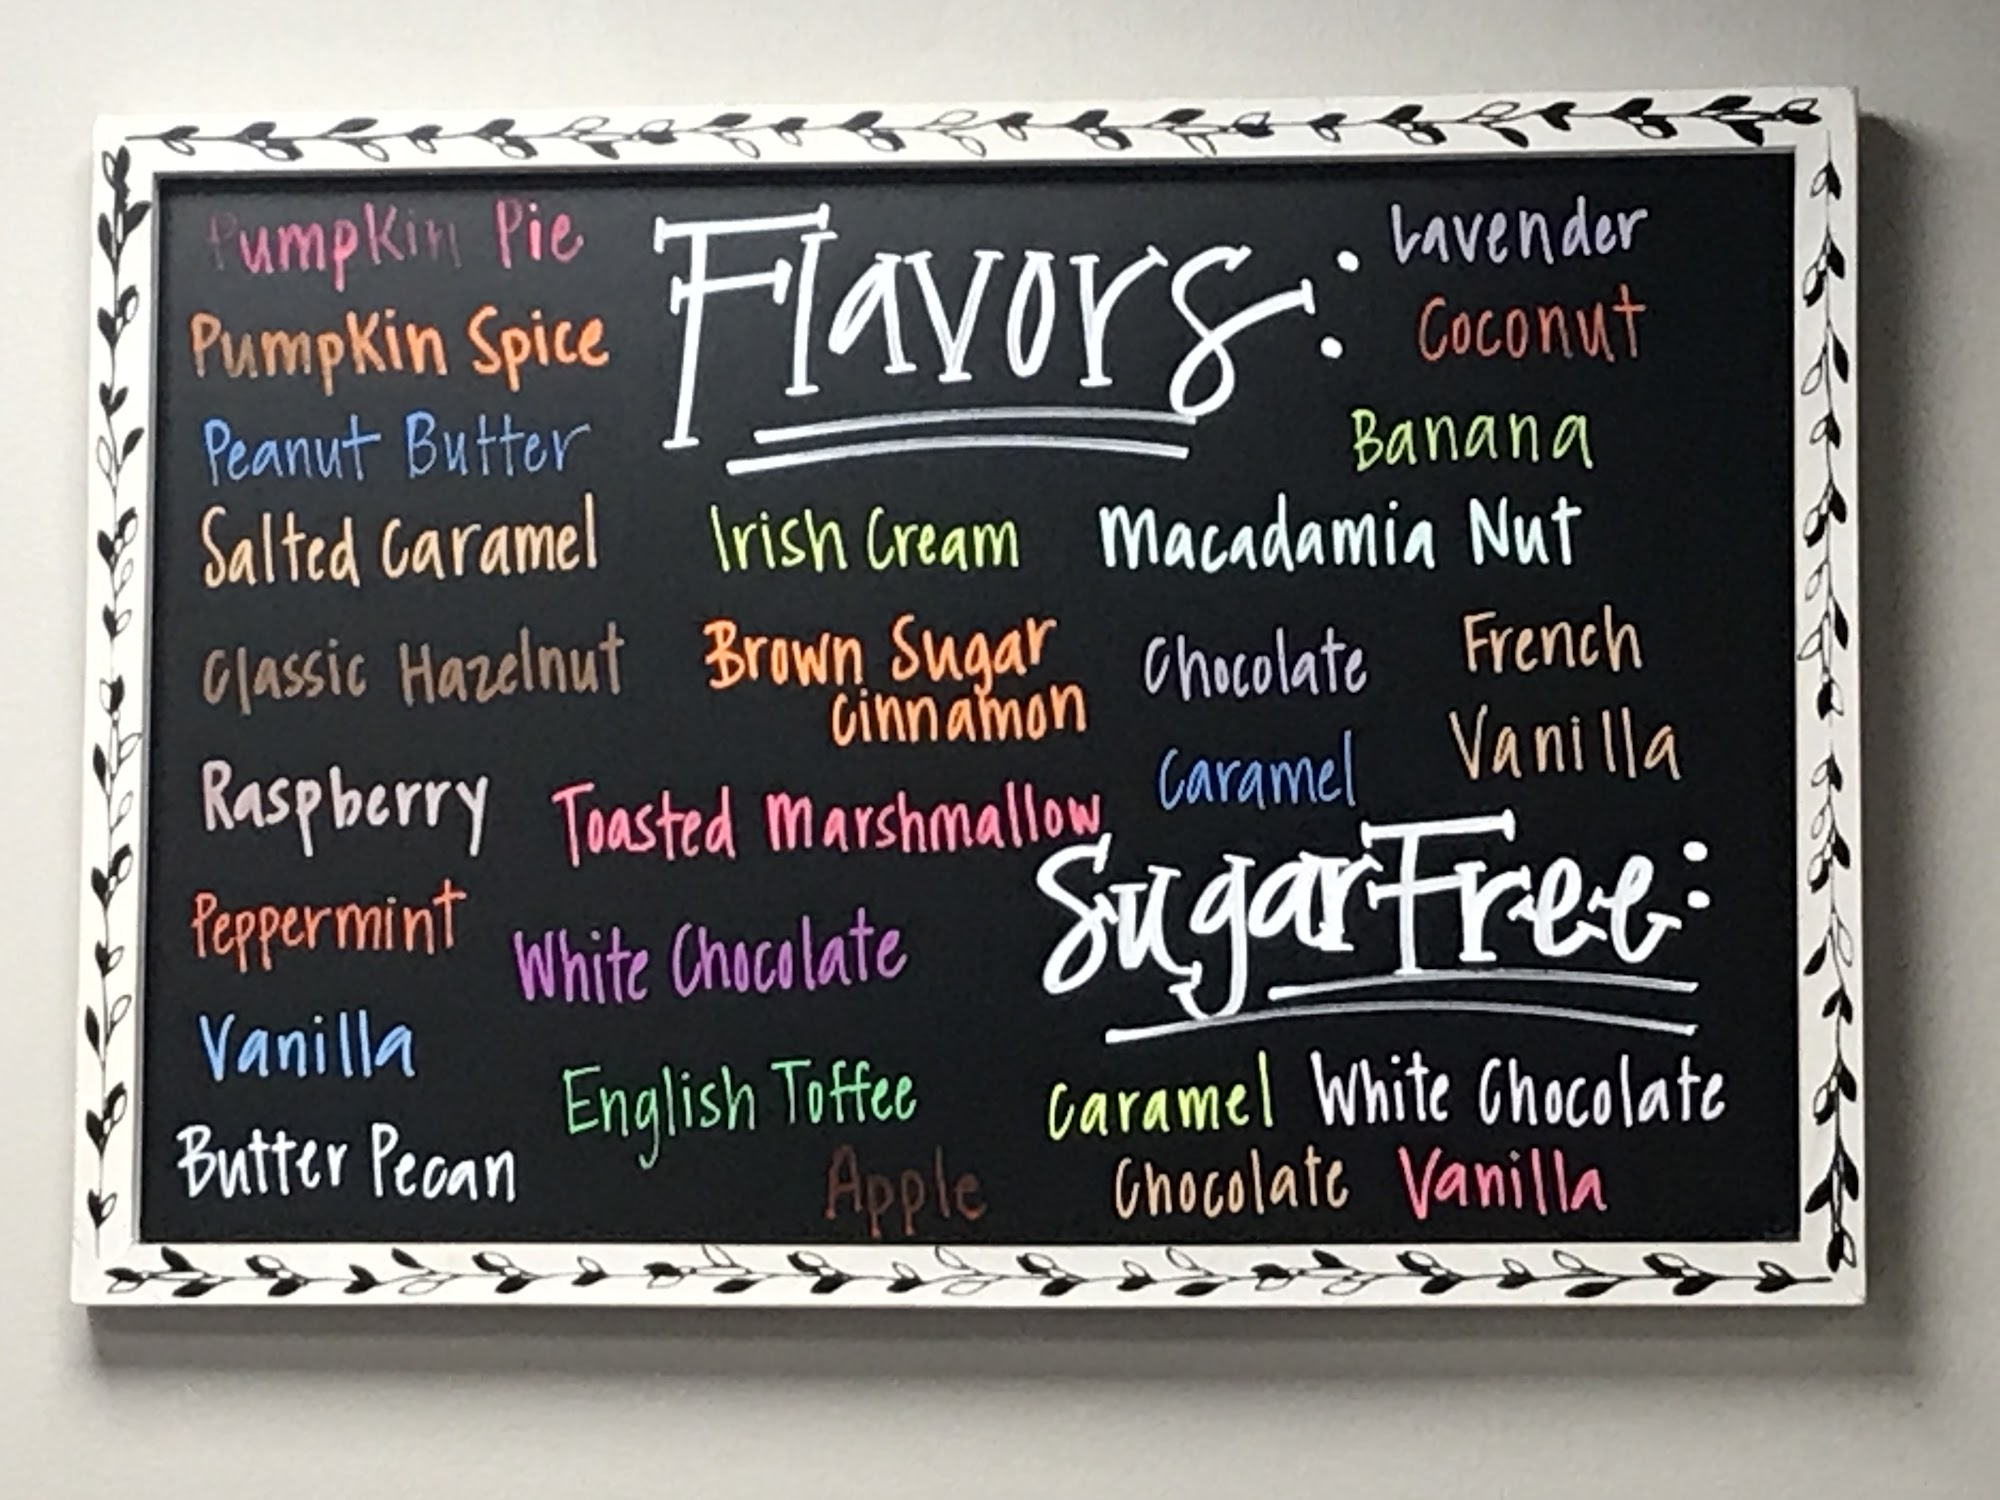 Flavors:
Pumpkin Pie
Pumpkin Spice
Peanut Butter
Salted Caramel
Classic Hazelnut
Raspberry
Peppermint
Vanilla
Butter Pecan
Irish Cream
Brown Sugar
Cinnamon
Toasted Marshmallow
White Chocolate
English Toffee
Apple
Lavender
Coconut
Banana
Macadamia Nut
Chocolate
Caramel
French
Vanilla
Sugar Free:
Caramel White Chocolate
Chocolate Vanilla